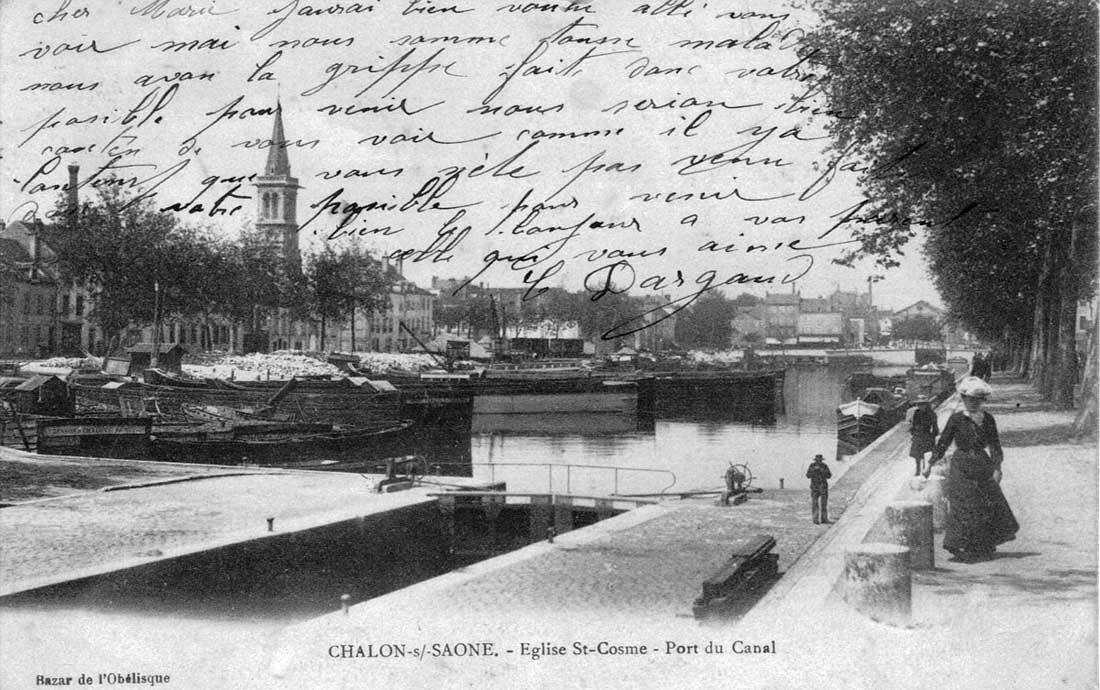 cher Marie J'aurai bien voulu allé vous
voir mai nous somme tousse malade
nous avon la grippe faite donc votre
posible pour venir nous serion bien
contén de vous voir comme il ya
lontem que vous vête pas venu faite
votre posible pour venir
bien le bonjour a vos parent
celle qui vous aime
C Dargaud
CHALON-s/-SAONE. - Eglise St-Cosme - Port du Canal
Bazar de l'Obélisque